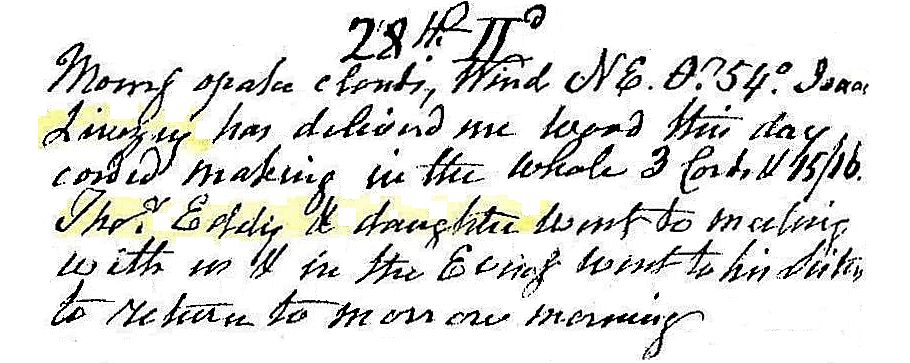 28th II d
Morng opake clouds, Wind NE. 54° Isaac
Livezey has deliverd me wood this day
corded making in the whole 3 Cords & 15/16.
Thos. Eddy & daughter went to meeting
with us & in the Eveng went to his sister
to return to morrow morning